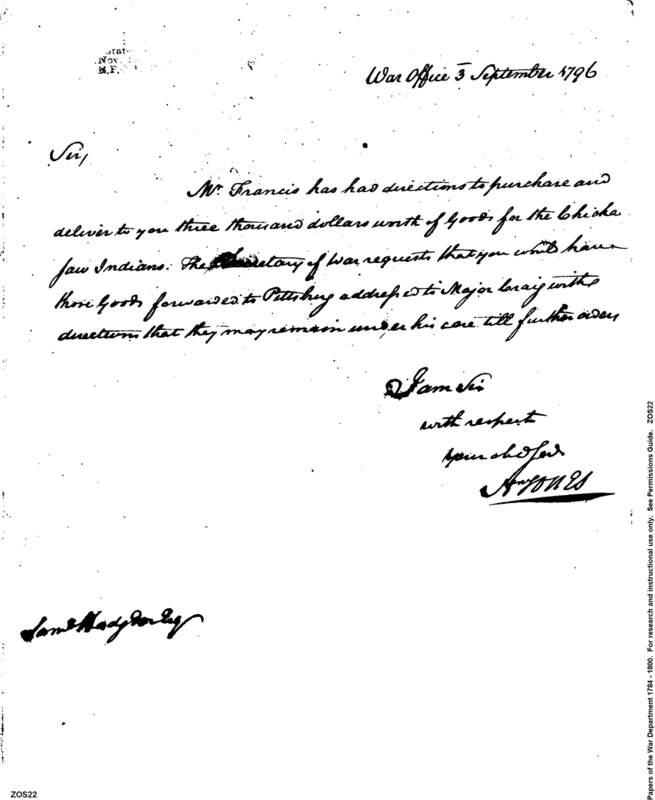 Nov.
War Office 3 September 1796
Sir,
Mr. Francis has had directions to purchase and
deliver to you three thousand dollars worth of Goods for the Chicka
saw Indians. The Secretary of War requests that you would have
those Goods forwarded to Pittsburg addressed to Major Craig with
directions that they may remain under his care till further orders
I am Sir
with respect
your obd Serv
Wm JONES
Saml Hodgdon Esq
ZOS22
Papers of the War Department 1784 - 1800. For research and instructional use only. See Permissions Guide. ZOS22